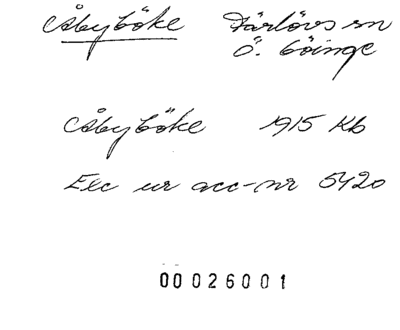 Åbyböke Färlövs sn
Ö. Göinge
Åbyböke 1915 Kb
Exc ur acc-nr 5420
00026001